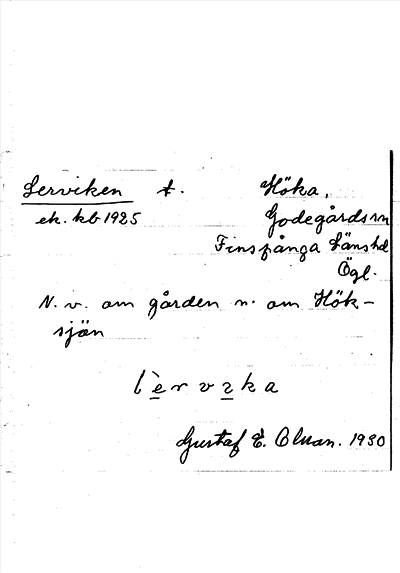 Lerviken t. Höka,
ek. kb 1925 Godegårds sn
Finspånga Länshd
Ögl.
N. v. om gården n. om Hök-
sjön
Gustaf E. Olman. 1930